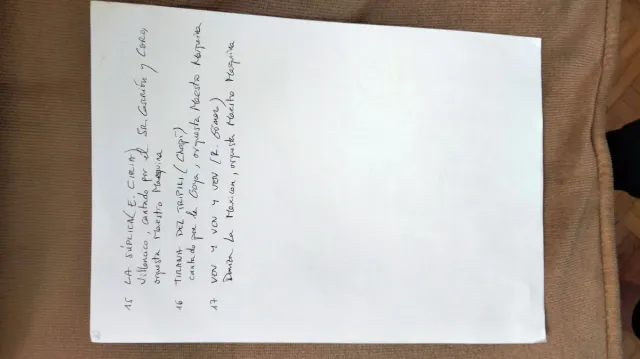 15 LA SÚPLICA (E. CIRIA)
Villancico, cantado por el Sr. Carrión y Coro,
orquesta Maestro Marquina
16 TIRANA DEL TRIPILI (Chapí)
cantado por la Goya, orquesta Maestro Marquina
17 VEN Y VEN Y VEN (R. Gómez)
La Mexican, orquesta Maestro Marquina